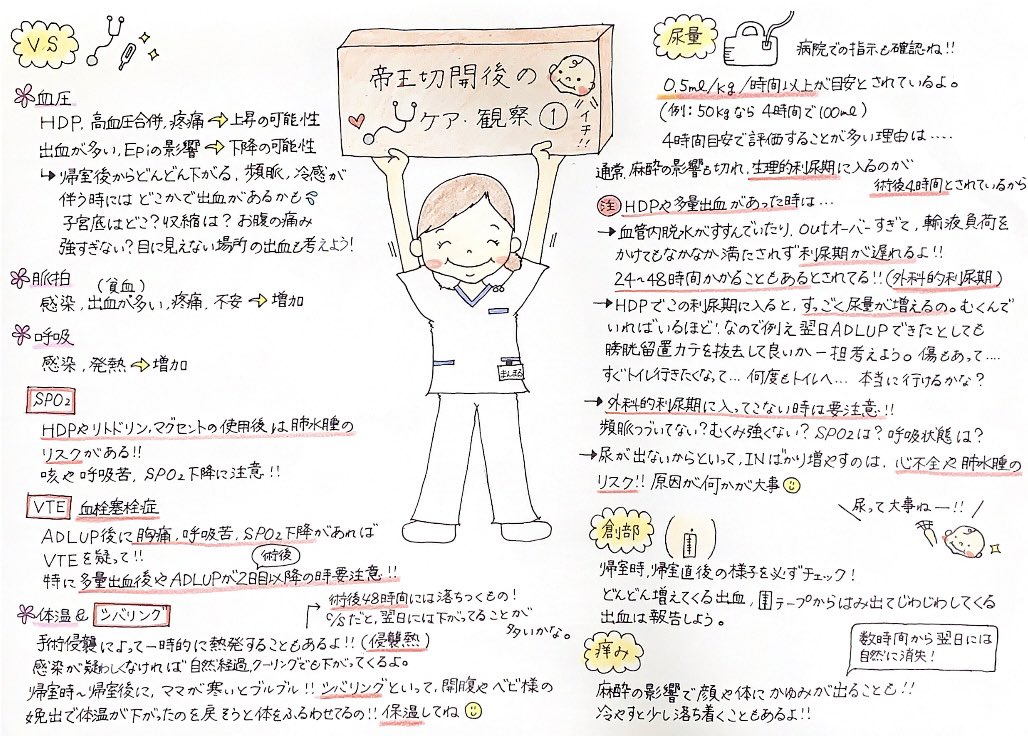 帝王切開後の
ケア・観察①
イチ!!
まんまる
VS
血圧
HDP, 高血圧合併, 疼痛→上昇の可能性
出血が多い, Epiの影響→下降の可能性
↳帰室後からどんどん下がる, 頻脈, 冷感が
伴う時には どこかで出血があるかも
子宮底はどこ? 収縮は? お腹の痛み
強すぎない? 目に見えない場所の出血も考えよう!
脈拍
(貧血)
感染, 出血が多い, 疼痛, 不安→増加
呼吸
感染, 発熱→増加
SPO₂
HDPやリトドリン, マグセントの使用後は肺水腫の
リスクがある!!
咳や呼吸苦, SPO₂下降に注意!!
VTE 血栓塞栓症
ADLUP後に胸痛, 呼吸苦, SPO₂下降があれば
VTEを疑って!!
術後
特に多量出血後やADLUPが2日目以降の時要注意!!
体温&シバリング
術後48時間には落ちつくもの!
C/Sだと, 翌日には下がってることが
多いかな。
手術侵襲によって一時的に熱発することもあるよ!! (侵襲熱)
感染が疑わしくなければ自然経過, クーリングでも下がってくるよ。
帰室時〜帰室後に, ママが寒いとブルブル!! シバリングといって, 開腹やベビ様の
娩出で体温が下がったのを戻そうと体をふるわせてるの!! 保温してね
尿量
病院での指示も確認ね!!
0.5ml/kg/時間以上が目安とされているよ。
(例: 50kgなら 4時間で100ml)
4時間目安で評価することが多い理由は‥‥
通常, 麻酔の影響も切れ, 生理的利尿期に入るのが
術後4時間とされているから
注 HDPや多量出血があった時は…
→血管内脱水がすすんでいたり, Outオーバーすぎて, 輸液負荷を
かけてもなかなか満たされず利尿期が遅れるよ!!
24〜48時間かかることもあるとされてる!! (外科的利尿期)
→HDPでこの利尿期に入ると, すっごく尿量が増えるの。むくんで
いればいるほど! なので例え翌日ADLUPできたとしても
膀胱留置カテを抜去して良いか一担考えよう。傷もあって‥‥
すぐトイレ行きたくなって… 何度もトイレへ… 本当に行けるかな?
→外科的利尿期に入ってこない時は要注意!!
頻脈つづいてない? むくみ強くない? SPO2は? 呼吸状態は?
→尿が出ないからといって, INばかり増やすのは, 心不全や肺水腫の
リスク!! 原因が何かが大事
尿って大事ねー!!
創部
帰室時, 帰室直後の様子を必ずチェック!
どんどん増えてくる出血, テープからはみ出てじわじわしてくる
出血は報告しよう。
痒み
数時間から翌日には
自然に消失!
麻酔の影響で顔や体にかゆみが出ることも!!
冷やすと少し落ち着くこともあるよ!!